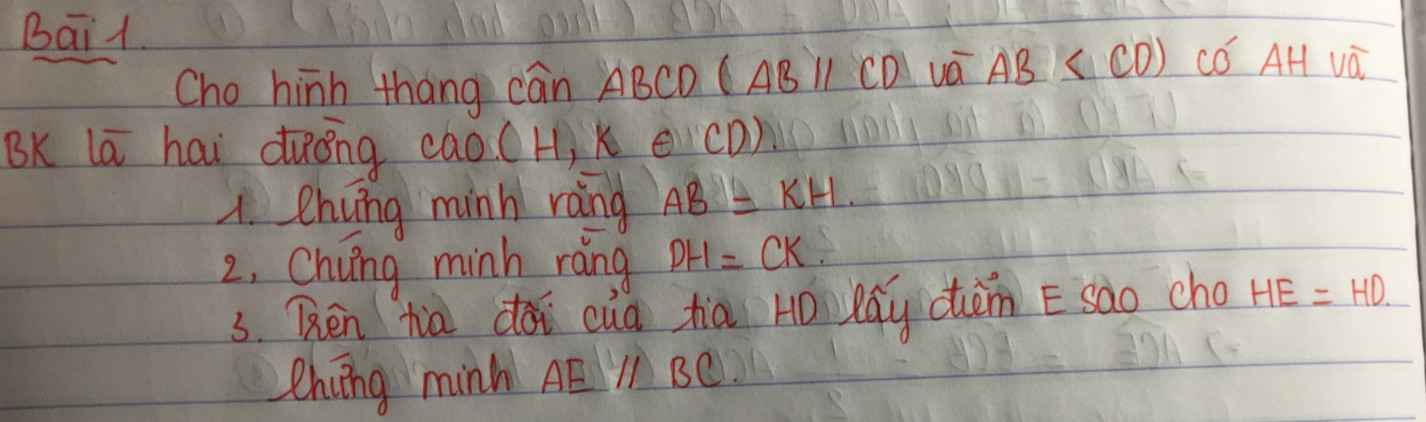 Bài 1.
Cho hình thang cân ABCD (AB // CD và AB < CD) có AH và
BK là hai đường cao. (H, K ∈ CD).
1. Chứng minh rằng AB = KH.
2, Chứng minh rằng DH = CK.
3. Trên tia đối của tia HD lấy điểm E sao cho HE = HD.
Chứng minh AE // BC.